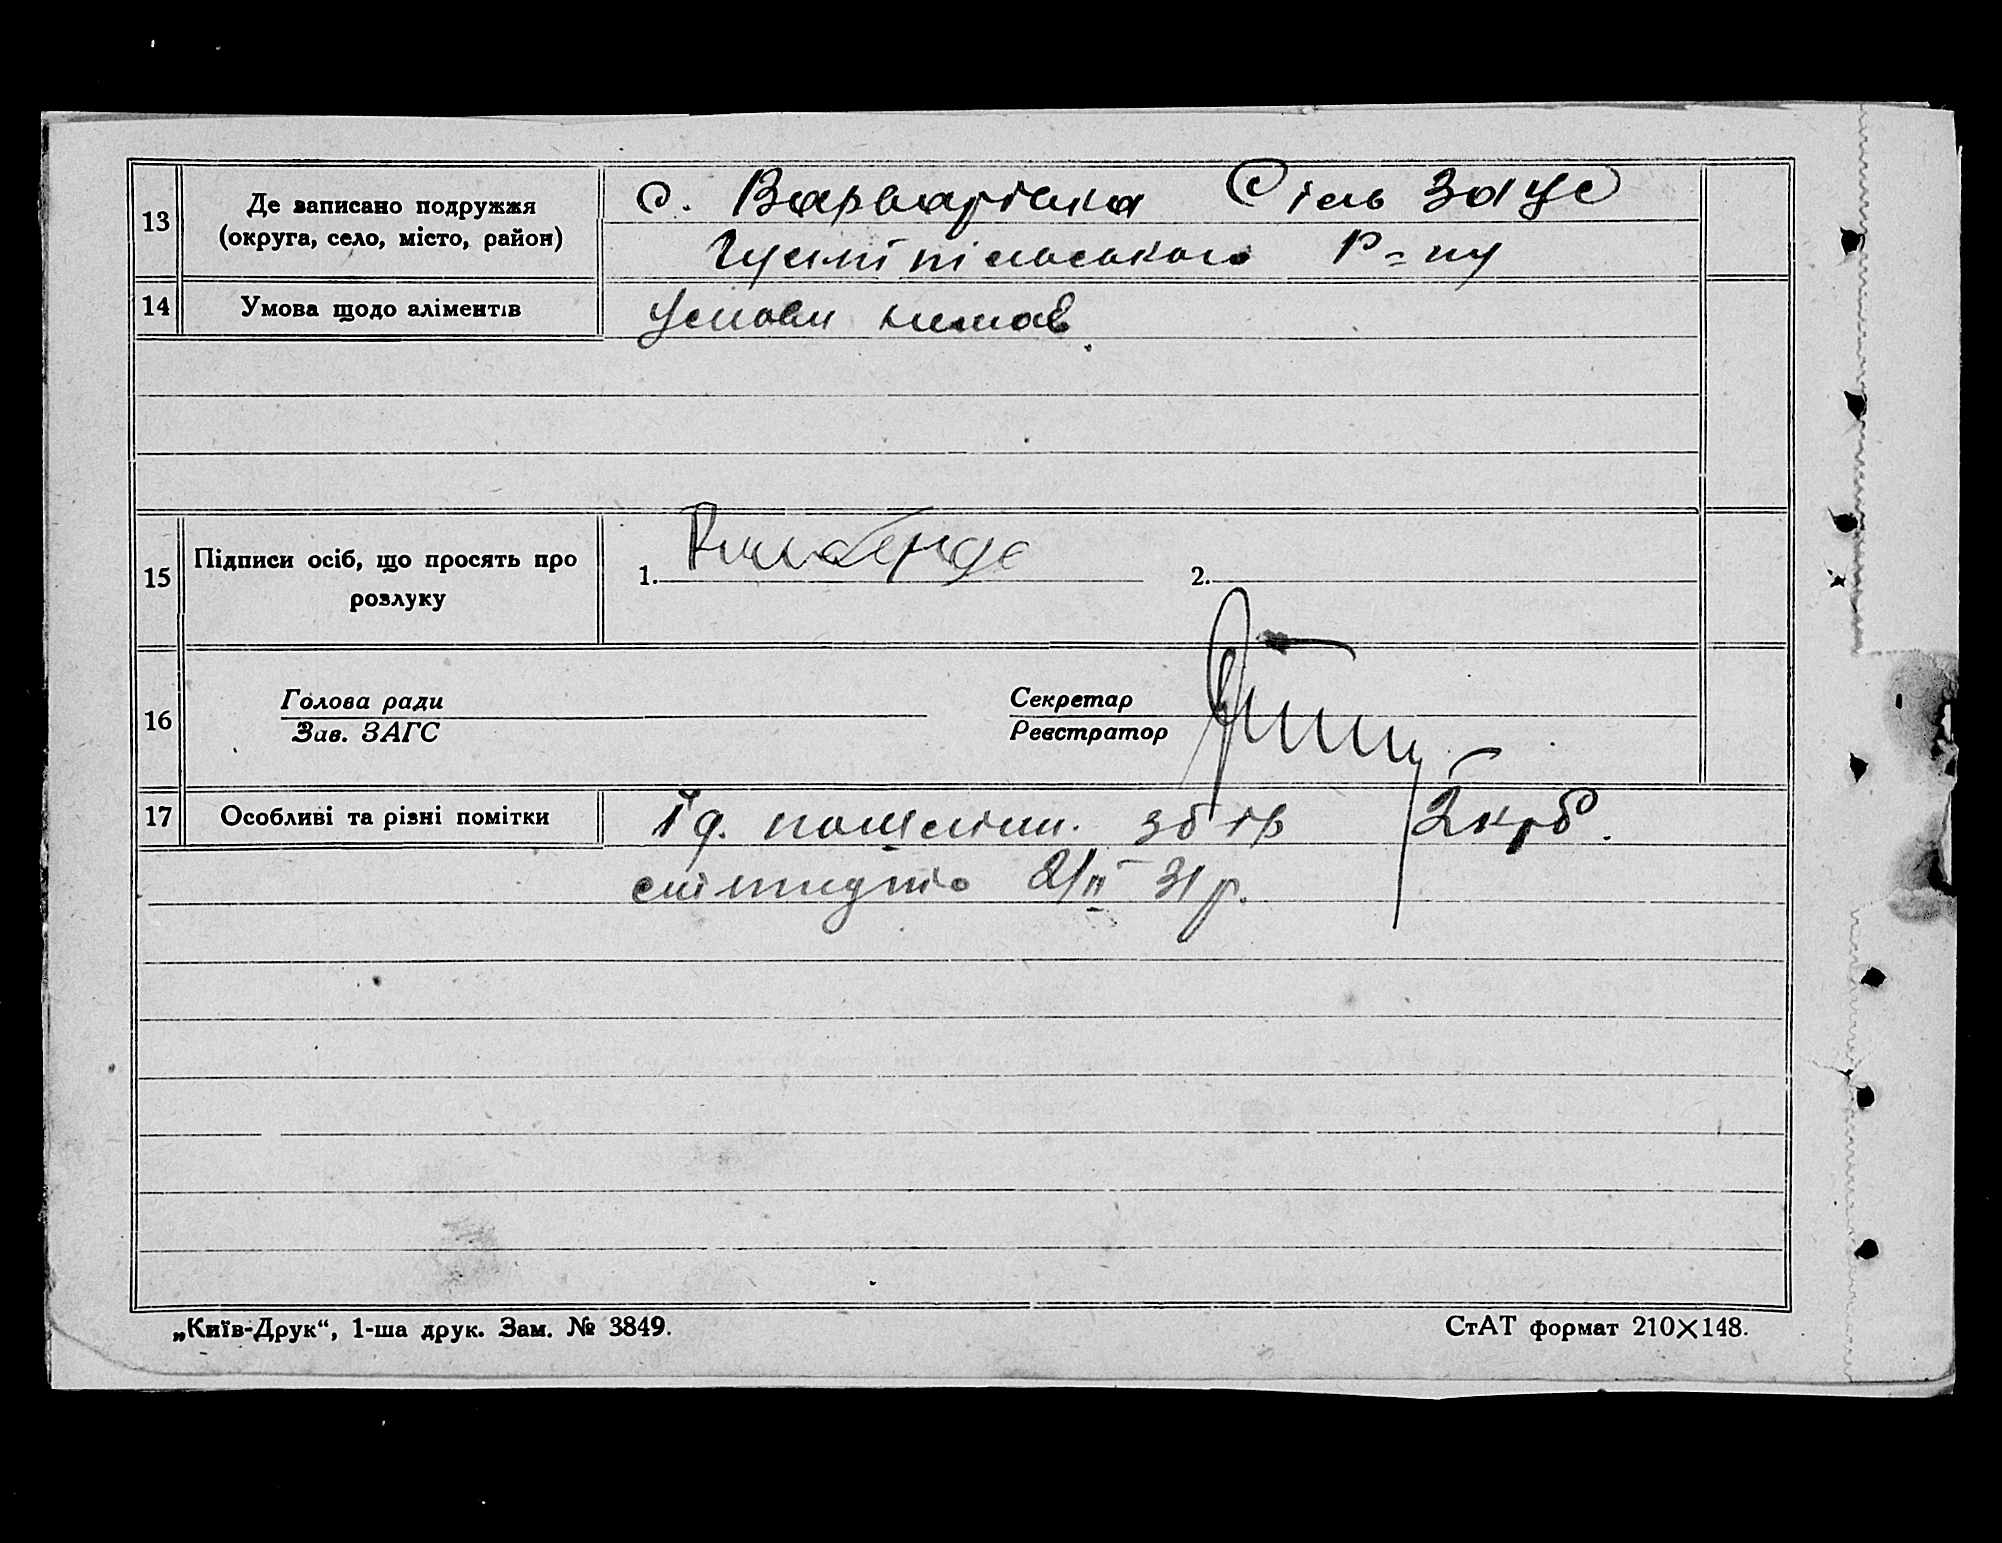 13
Де записано подружжя
(округа, село, місто, район)
с. Варварівка Сіль Загс
Р=ну
14
Умова щодо аліментів
Умови немає
15
Підписи осіб, що просять про
розлуку
1.
2.
16
Голова ради
Зав. ЗАГС
Секретар
Реєстратор
17
Особливі та різні помітки
збір 2 крб.
2/II 31 р.
„Київ-Друк“, 1-ша друк. Зам. № 3849.
СтАТ формат 210×148.